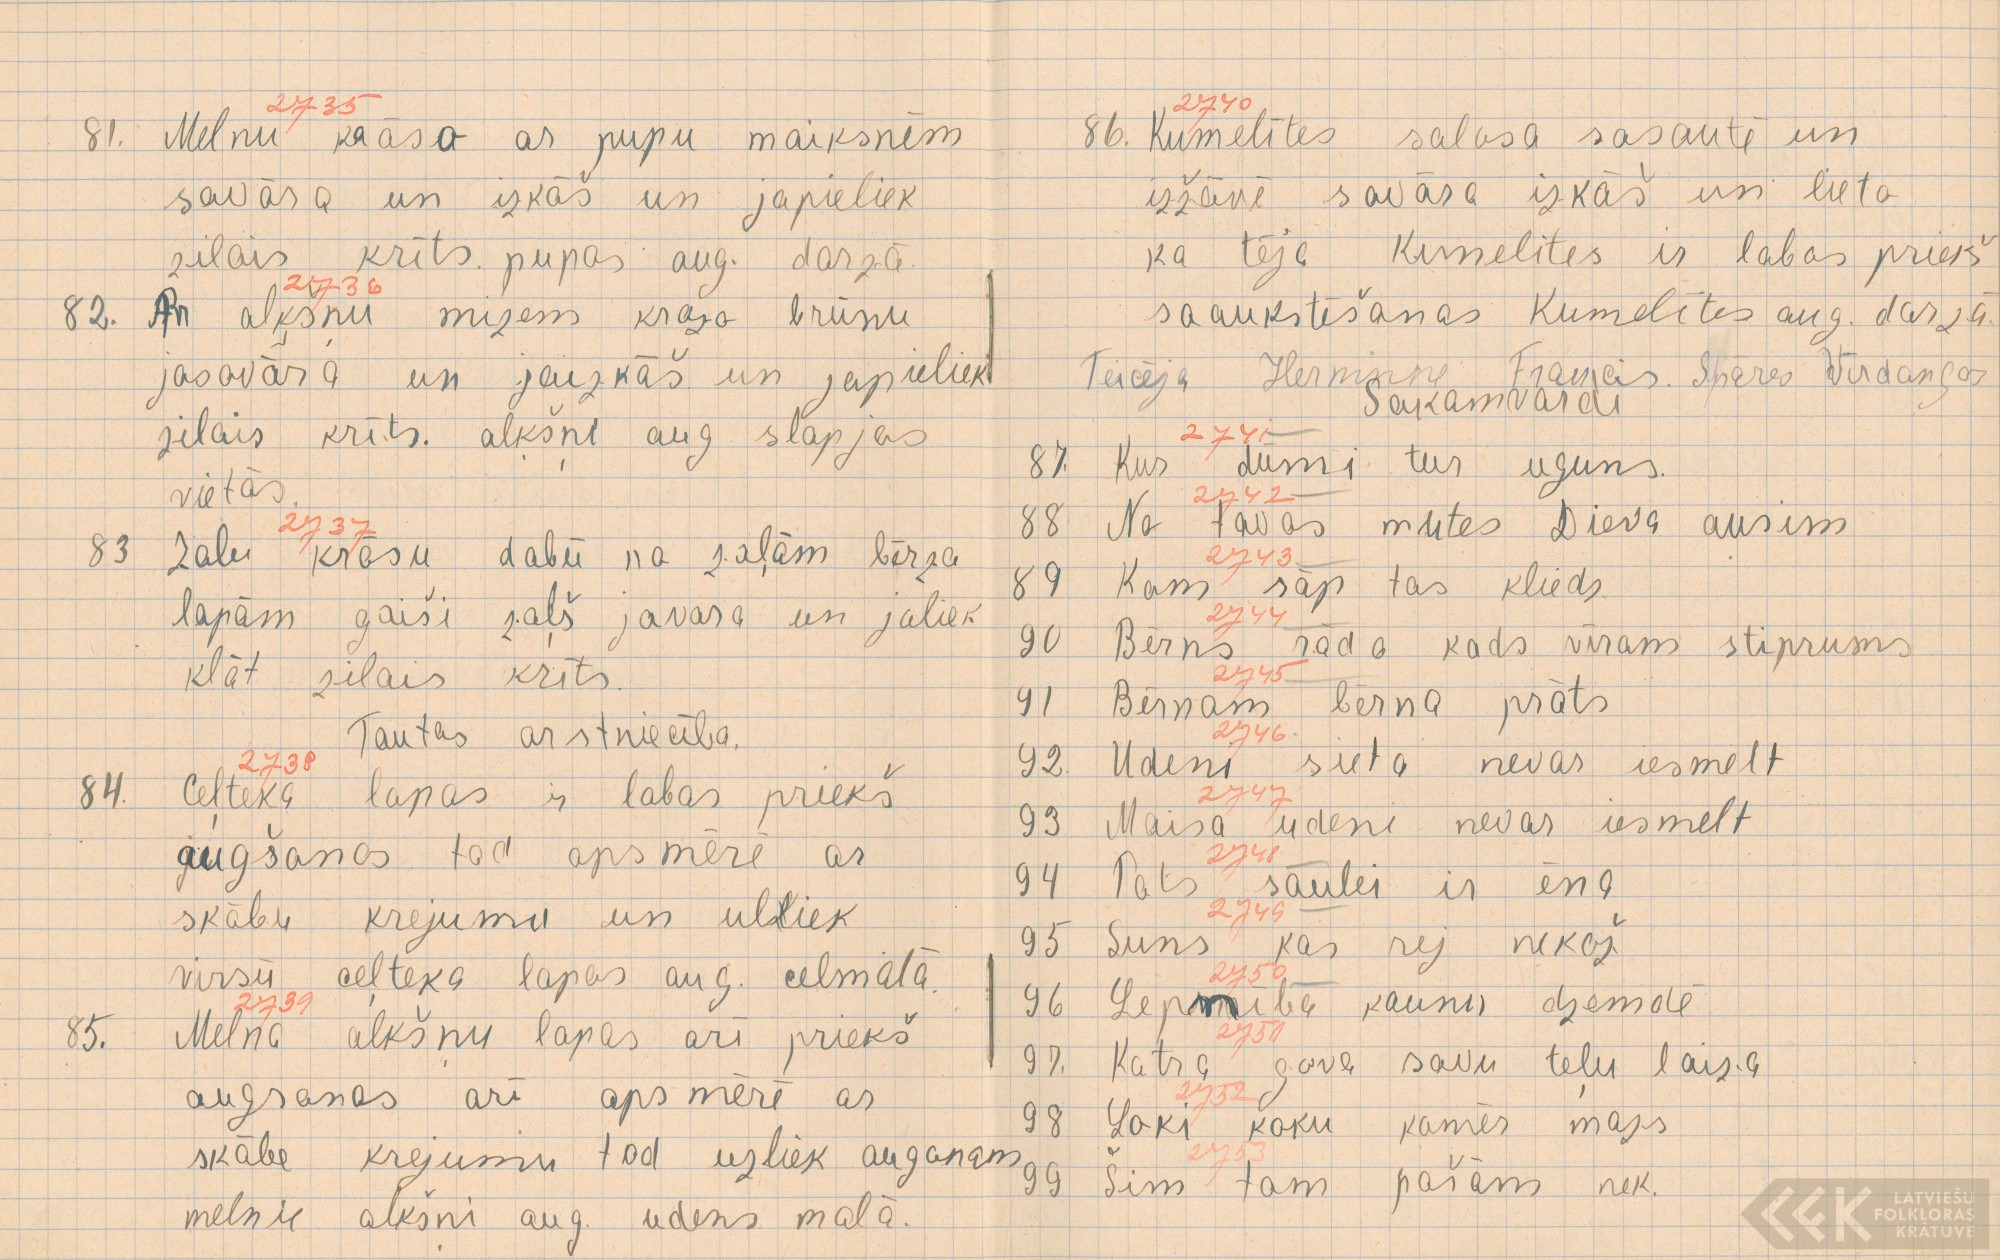 2735
81. Melnu krāsa ar pupu maiksnēm
savāra un izkāš un japieliek
zilais krīts. pupas aug. darzā.
2736
82. Ar alkšņu mizem kraso brūnu
jasavāra un jaizkāš un japieliek
zilais krīts. alkšņi aug slapjas
vietās.
2737
83 Zaļu krāsu dabū na zaļām bērza
lapām gaiši zaļš javara un jaliek
klāt zilais krīts.
Tautas arstniecība.
2738
84. Ceļteka lapas ir labas priekš
augšanas tad apsmērē ar
skābu krejumu un uzliek
virsū ceļteka lapas aug. celmālā.
2739
85. Melna alkšņu lapas arī priekš
augsanas arī apsmērē ar
skābe krejumu tad uzliek auganam
melnie alkšņi aug. udens malā.
2740
86. Kumelītes salasa sasautē un
izžāvē savāra izkāš un lieto
ka tēja Kumelītes ir labas priekš
saaukstēšanas Kumelītes aug. darzā.
Teicēja Hermīnne Francis. Spāres Virdangas
Sakamvārdi
2741
87. Kur dūmi tur uguns.
2742
88 No tavas mutes Dieva ausim
2743
89 Kam sāp tas kliedz
2744
90 Bērns rāda kads vīram stiprums
2745
91 Bērnam bērna prāts
2746.
92. Udeni sieta nevar iesmelt
2747
93 Maisa udeni nevar iesmelt
2748
94 Pats saulei ir ēna
2749
95 Suns kas rej nekož
2750
96 Lepnība kaunu dzemdē
2751
97. Katra gova savu teļu laiza
2752
98 Loki koku kamēr mazs
2753
99 Šim tam pašām nek.
LATVIEŠU
FOLKLORAS
KRĀTUVE